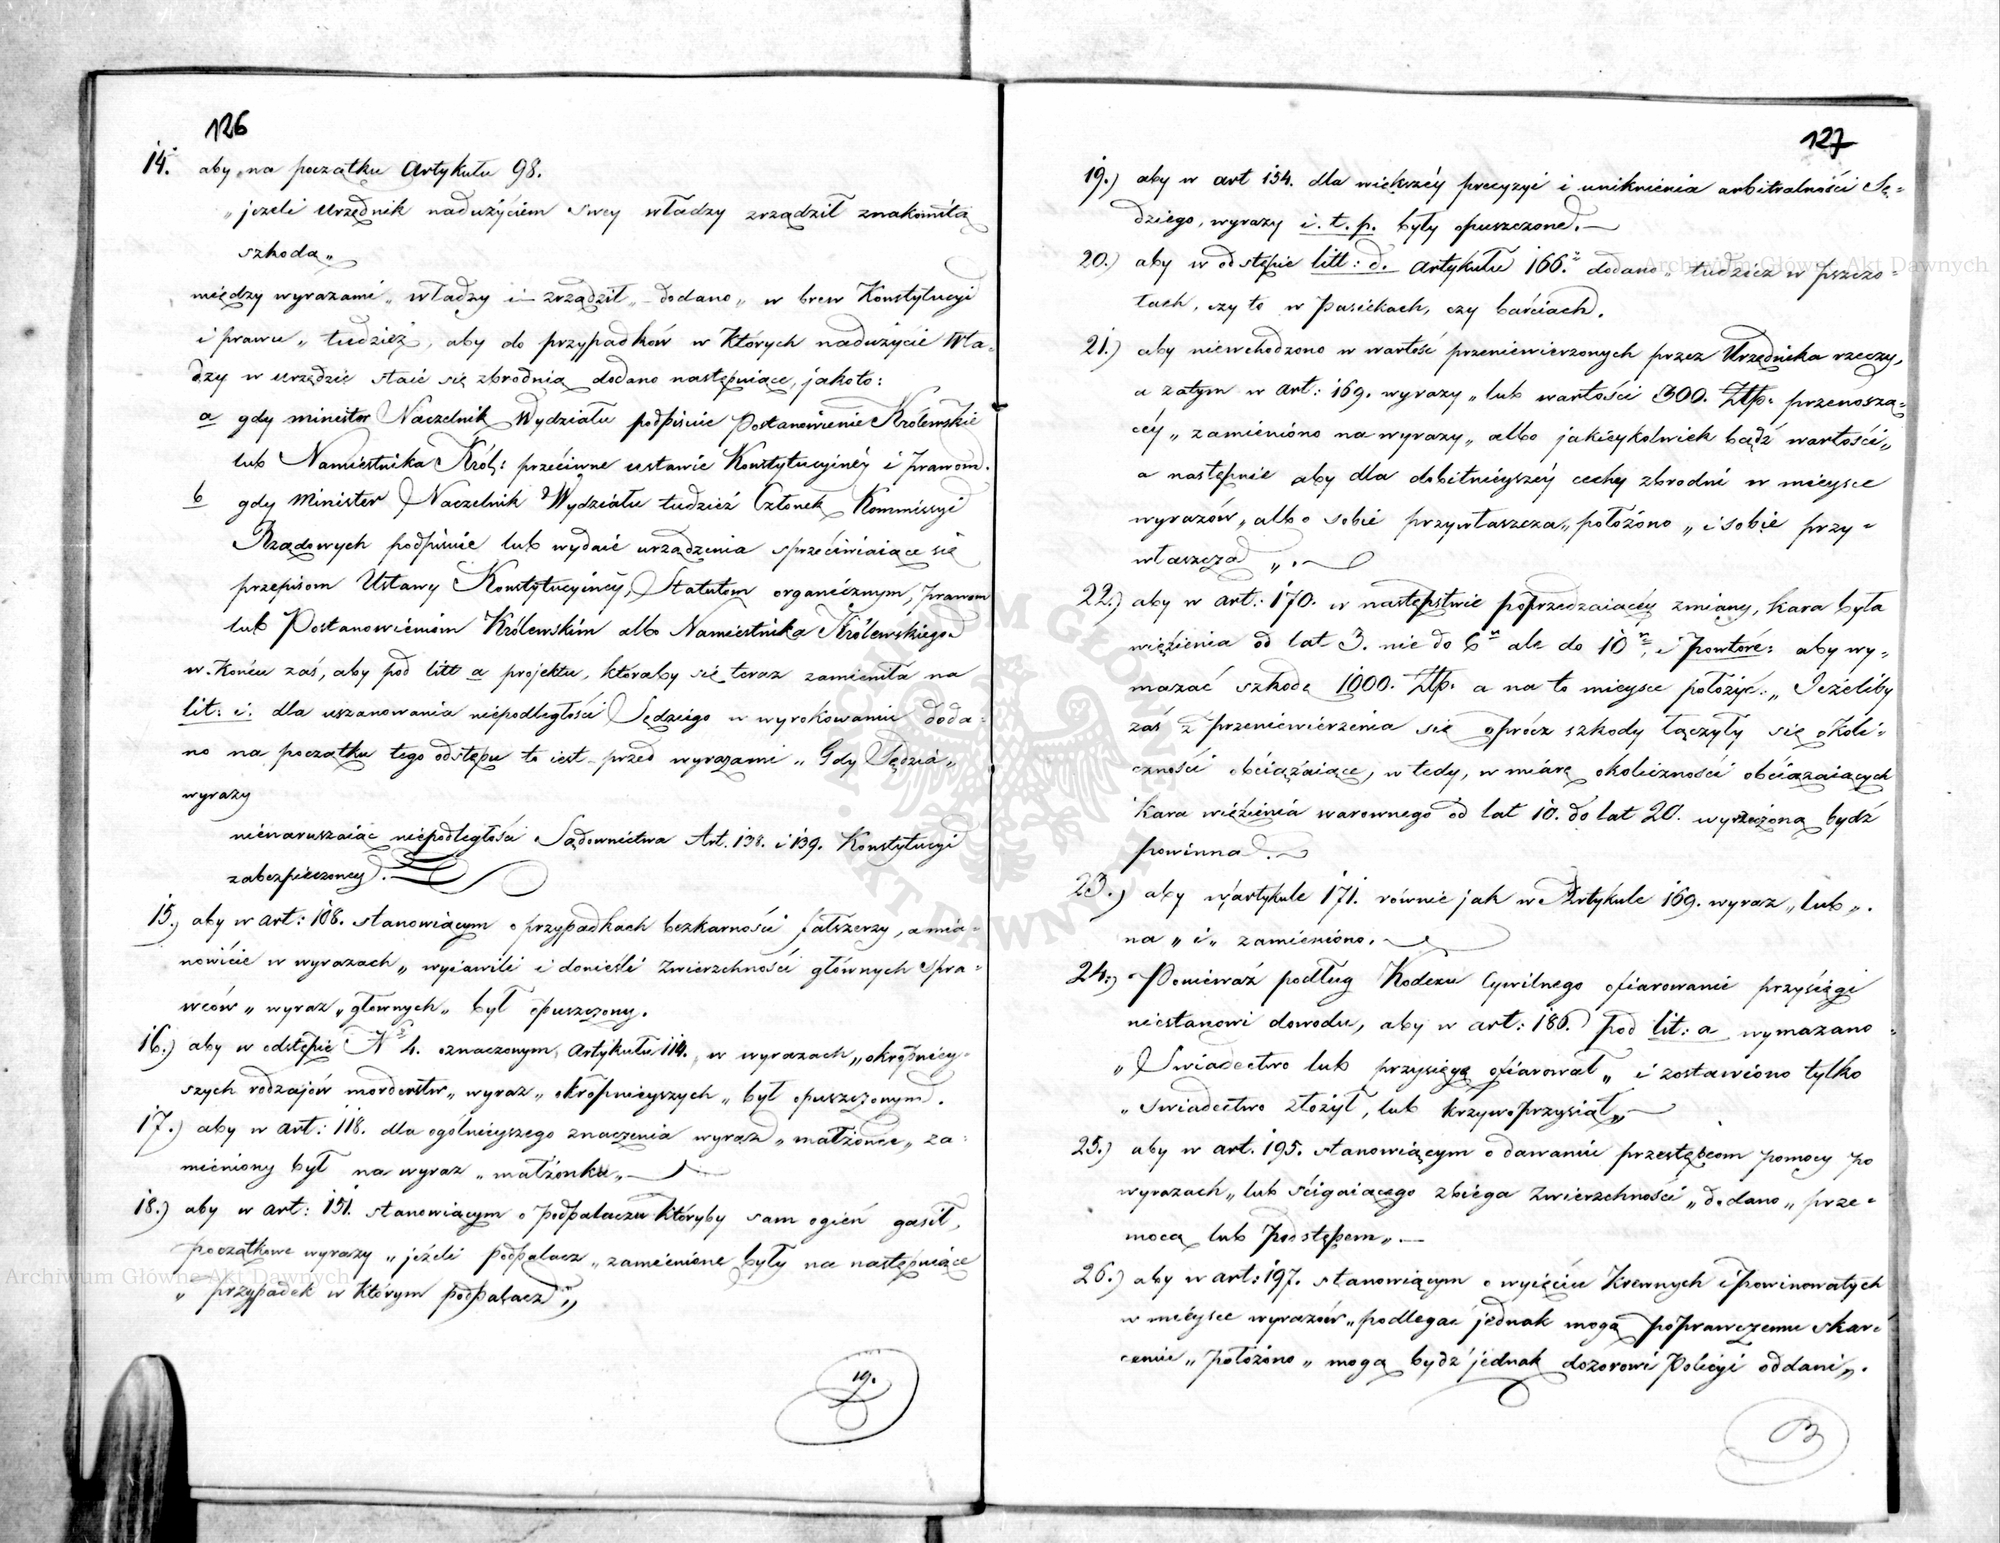 126
14. aby na początku Artykułu 98.
„jeżeli Urzędnik nadużyciem swey władzy zrządził znakomitą
szkodę„
między wyrazami „władzy i zrządził„ dodano „w brew Konstytucyi
i prawu„ tudzież, aby do przypadków w których nadużycie Wła-
dzy w urzędzie staie się zbrodnią dodano następuiące, jako to:
a gdy minister Naczelnik Wydziału podpisuie Postanowienie Królewskie
lub Namiestnika Król: przeciwne ustawie Konstytucyinéy i prawom.
b gdy Minister Naczelnik Wydziału tudzież Członek Kommissyi
Rządowych podpisuie lub wydaie urządzenia sprzeciwiaiące się
przepisom Ustawy Konstytucyinéy, Statutom organicznym, prawom
lub Postanowieniom Królewskim albo Namiestnika Królewskiego
w końcu zaś, aby pod litt a projektu, któraby się teraz zamieniła na
lit: c: dla uszanowania niepodległości Sędziego w wyrokowaniu doda-
no na początku tego odstępu to iest przed wyrazami „Gdy Sędzia„
wyrazy
nienaruszaiąc niepodległości Sądownictwa Art. 138. i 139. Konstytucyi
zabezpieczoney.
15.) aby w art: 108. stanowiącym o przypadkach bezkarności fałszerzy, a mia-
nowicie w wyrazach „wyiawili i donieśli Zwierzchności głównych Spra-
wców„ wyraz „głównych„ był opuszczony.
16.) aby w odstępie N 4. oznaczonym, Artykułu 114. w wyrazach „okropniey-
szych rodzajów morderstw„ wyraz „okropnieyszych„ był opuszczonym.
17.) aby w art: 118. dla ogólnieyszego znaczenia wyraz „małżonce„ za-
mieniony był na wyraz „małżonku„
18.) aby w art: 151. stanowiącym o podpalaczu któryby sam ogień gasił,
początkowe wyrazy „jeżeli podpalacz„ zamienione były na następuiące
„przypadek w którym podpalacz„
19.
127
19.) aby w art 154. dla większéy precyzyi i uniknienia arbitralności Sę-
dziego, wyrazy i. t. p. były opuszczone.
20.) aby w odstępie litt: d. artykułu 166. dodano „tudzież w pszczo-
łach, czy to w Pasiekach, czy barciach.
21.) aby niewchodzono w wartość przeniewierzonych przez Urzędnika rzeczy,
a zatym w art: 169. wyrazy „lub wartości 300. Złp. przenoszą-
céy„ zamieniono na wyrazy „albo jakieykolwiek bądź wartości„
a następnie aby dla dobitnieyszéy cechy zbrodni w mieysce
wyrazów „albo sobie przywłaszcza„ położono „i sobie przy-
właszcza„.
22.) aby w art: 170. w następstwie poprzedzaiacéy zmiany, kara była
więzienia od lat 3. nie do 6 ale do 10, i powtóre: aby wy-
mazać szkodę 1000. Złp. a na to mieysce położyć: „Jeżeliby
zaś z przeniewierzenia się oprócz szkody łączyły się okoli-
czności obciążaiące, wtedy, w miarę okoliczności obciążaiących
kara więzienia warownego od lat 10. do lat 20. wyrzeczoną bydź
powinna.
23.) aby w artykule 171. równie jak w Artykule 169. wyraz „lub„.
na „i„ zamieniono.
24.) Ponieważ podług Kodexu Cywilnego ofiarowanie przysięgi
niestanowi dowodu, aby w art: 186. pod lit: a wymazano
„Swiadectwo lub przysięgę ofiarował„ i zostawiono tylko
„Swiadectwo złożył, lub krzywoprzysiągł„
25.) aby w art. 195. stanowiącym o dawaniu przestępcom pomocy po
wyrazach „lub ścigaiącego zbiega Zwierzchności„ dodano „prze-
mocą lub Podstępem„.
26.) aby w art: 197. stanowiącym o wyięciu Krewnych i Powinowatych
w mieysce wyrazów „podlegać jednak mogą poprawczemu skar-
ceniu„ położono „mogą bydź jednak dozorowi Policyi oddani„.
Archiwum Główne Akt Dawnych
Archiwum Główne Akt Dawnych
ARCHIWUM GŁÓWNE AKT DAWNYCH